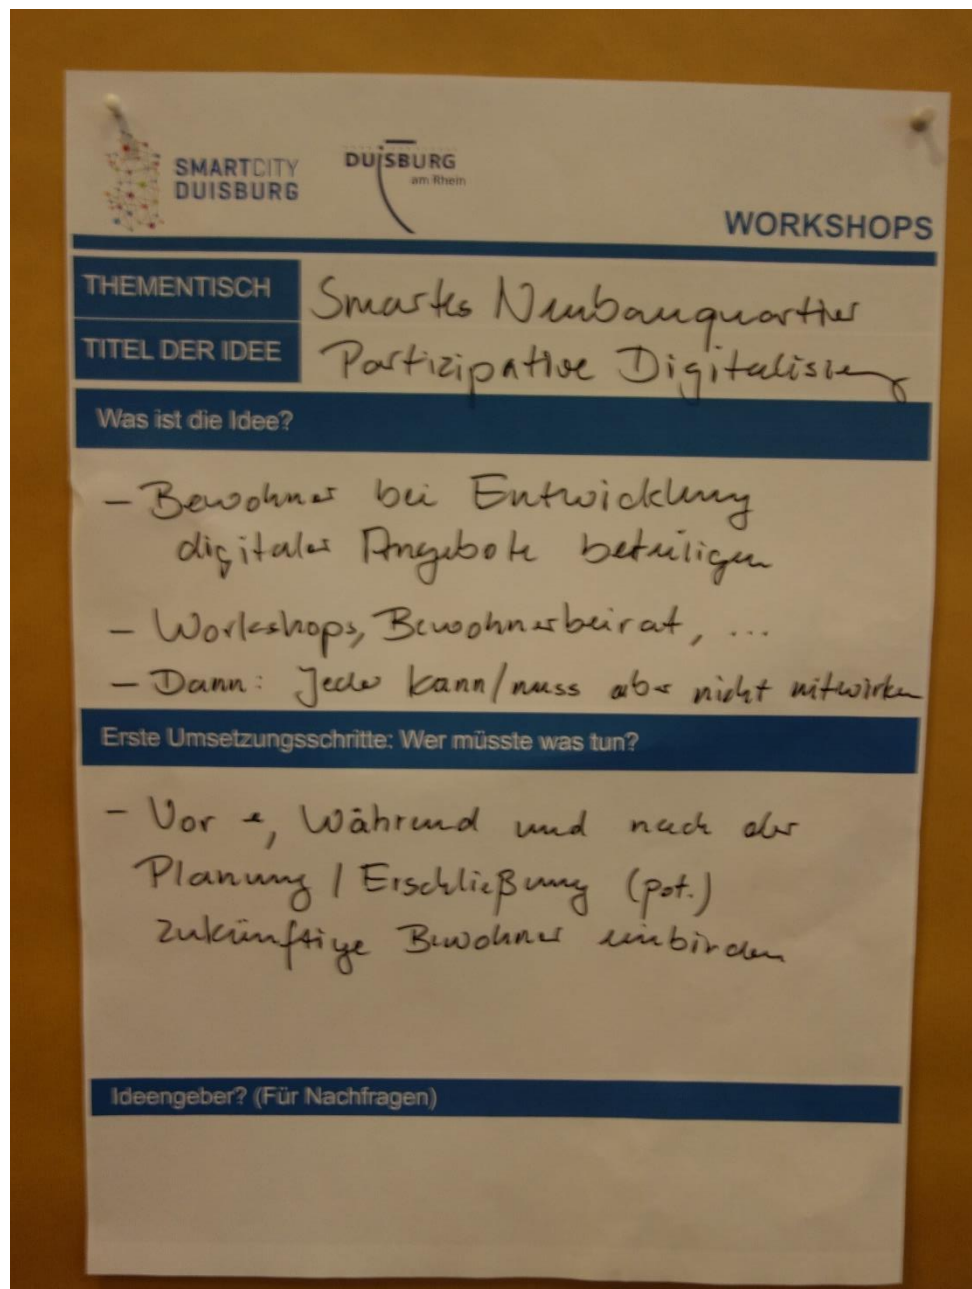 SMARTCITY
DUISBURG
DUISBURG
am Rhein
WORKSHOPS
THEMENTISCH
Smartes Neubauquartier
TITEL DER IDEE
Partizipative Digitalisierung
Was ist die Idee?
- Bewohner bei Entwicklung
digitaler Angebote beteiligen
- Workshops, Bewohnerbeirat, ...
- Dann: Jeder kann/muss aber nicht mitwirken
Erste Umsetzungsschritte: Wer müsste was tun?
- Vor, Während und nach der
Planung / Erschließung (pot.)
zukünftige Bewohner einbinden
Ideengeber? (Für Nachfragen)